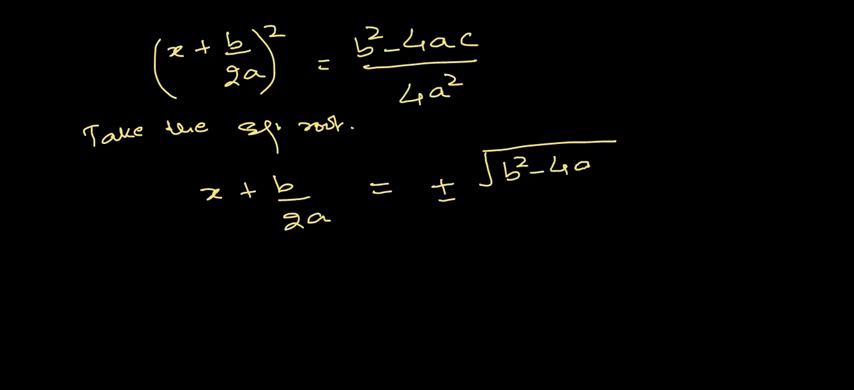 (x + b/2a)² = b² - 4ac / 4a²
Take the sq. root.
x + b/2a = ± √b² - 4a